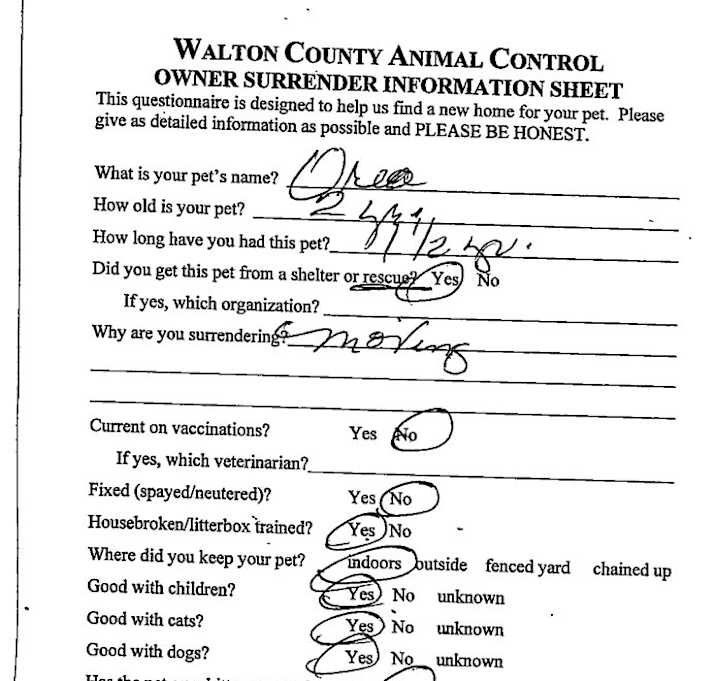 WALTON COUNTY ANIMAL CONTROL
OWNER SURRENDER INFORMATION SHEET
This questionnaire is designed to help us find a new home for your pet. Please
give as detailed information as possible and PLEASE BE HONEST.
What is your pet's name?
How old is your pet? 2
How long have you had this pet? 1/2 yr.
Did you get this pet from a shelter or rescue? Yes No
If yes, which organization?
Why are you surrendering? moving
Current on vaccinations? Yes No
If yes, which veterinarian?
Fixed (spayed/neutered)? Yes No
Housebroken/litterbox trained? Yes No
Where did you keep your pet? indoors outside fenced yard chained up
Good with children? Yes No unknown
Good with cats? Yes No unknown
Good with dogs? Yes No unknown